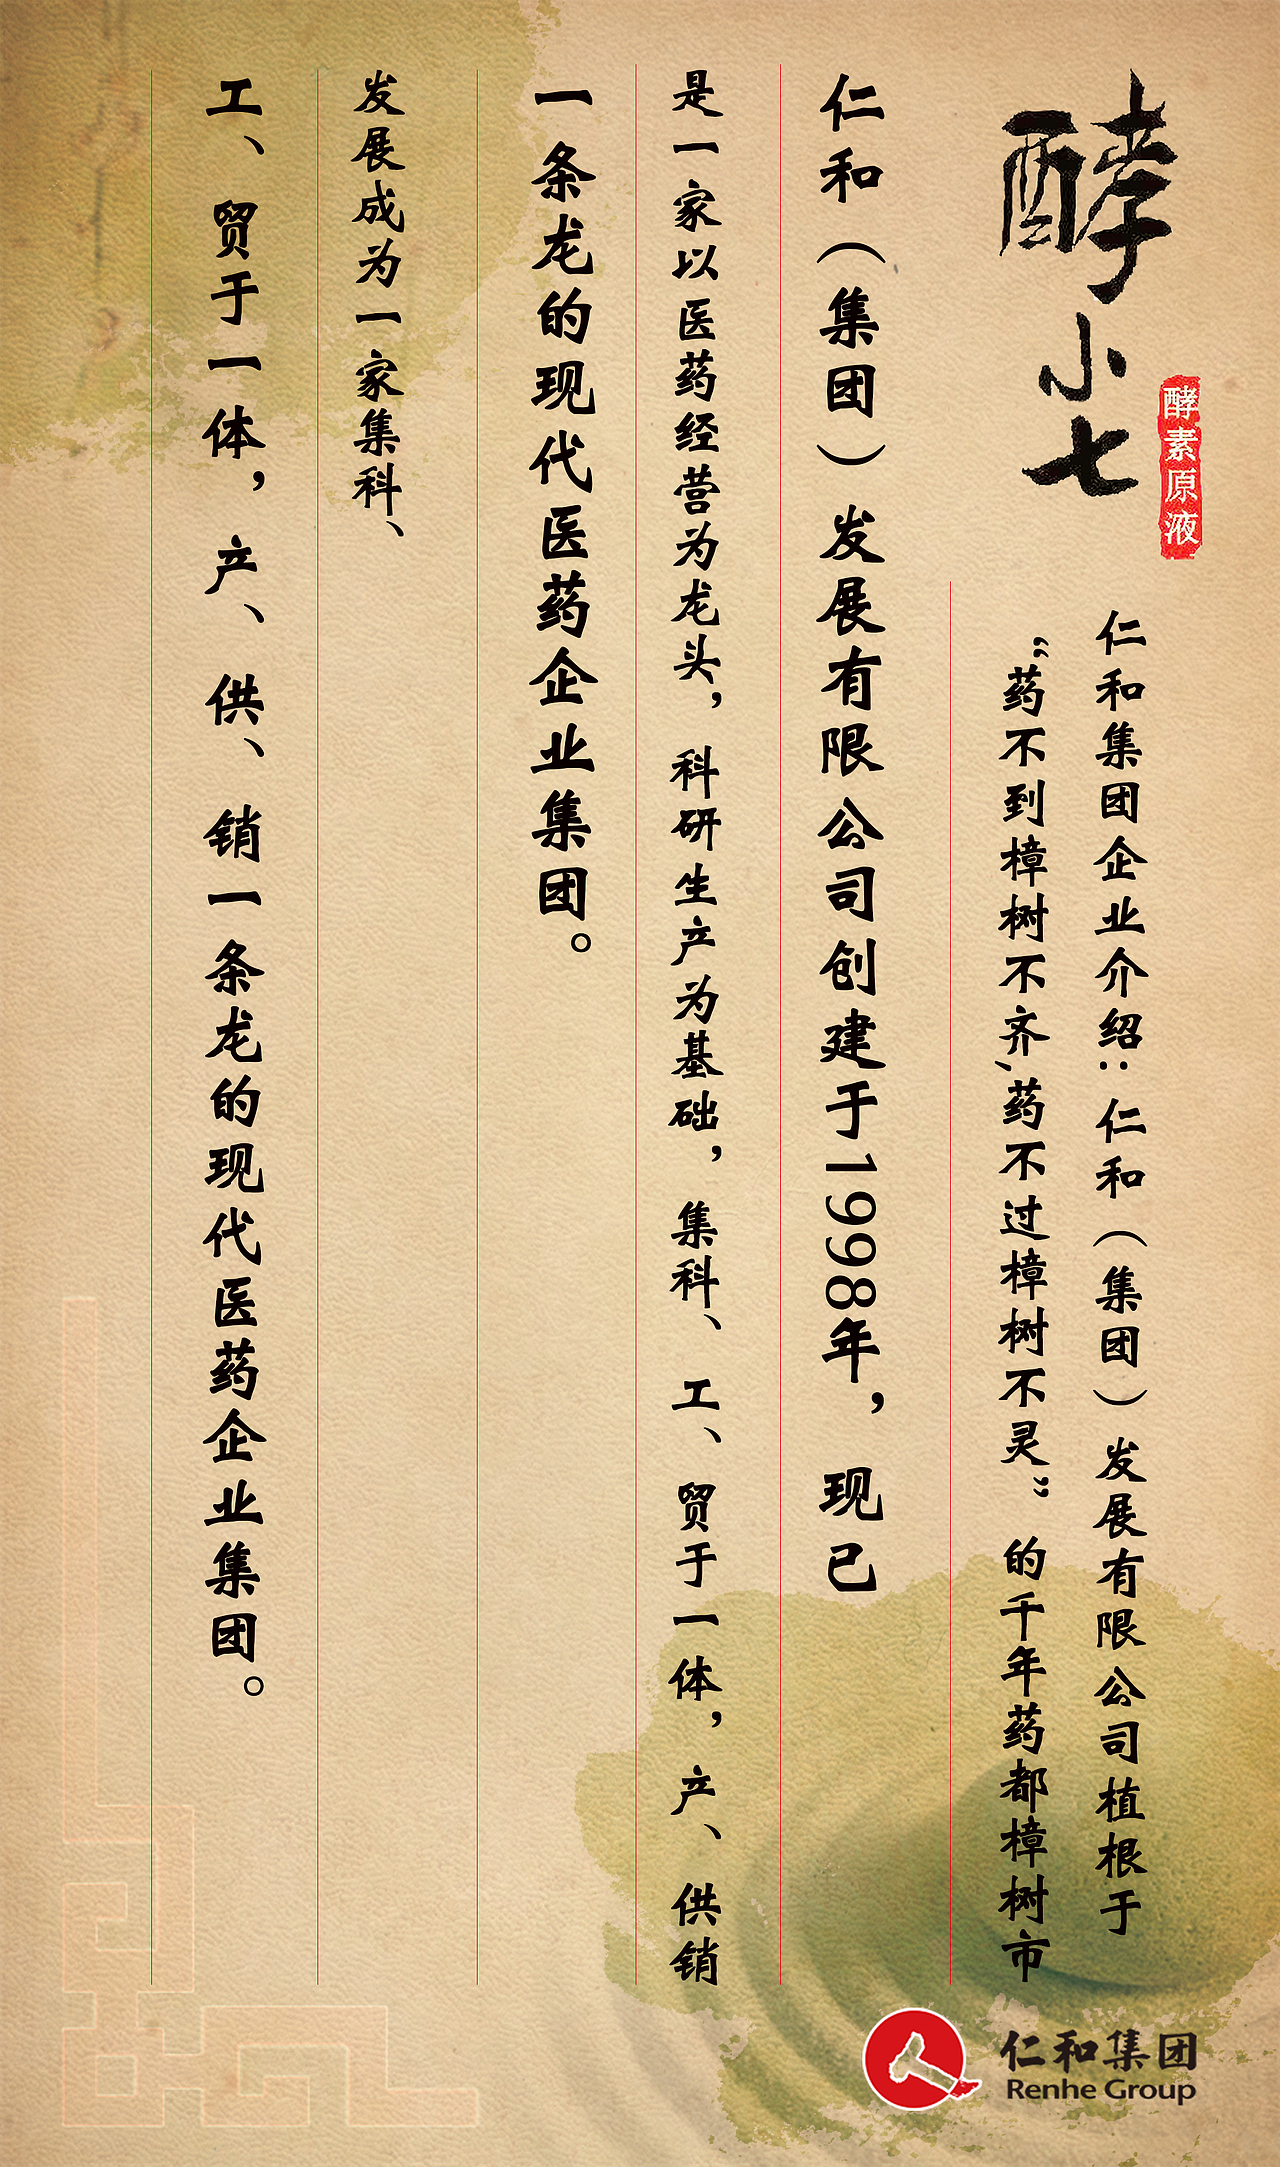 酵小七
酵素原液
仁和集团企业介绍：仁和（集团）发展有限公司植根于
“药不到樟树不齐,药不过樟树不灵”的千年药都樟树市
仁和（集团）发展有限公司创建于1998年，现已
是一家以医药经营为龙头，科研生产为基础，集科、工、贸于一体，产、供销
一条龙的现代医药企业集团。
发展成为一家集科、
工、贸于一体，产、供、销一条龙的现代医药企业集团。
仁和集团
Renhe Group